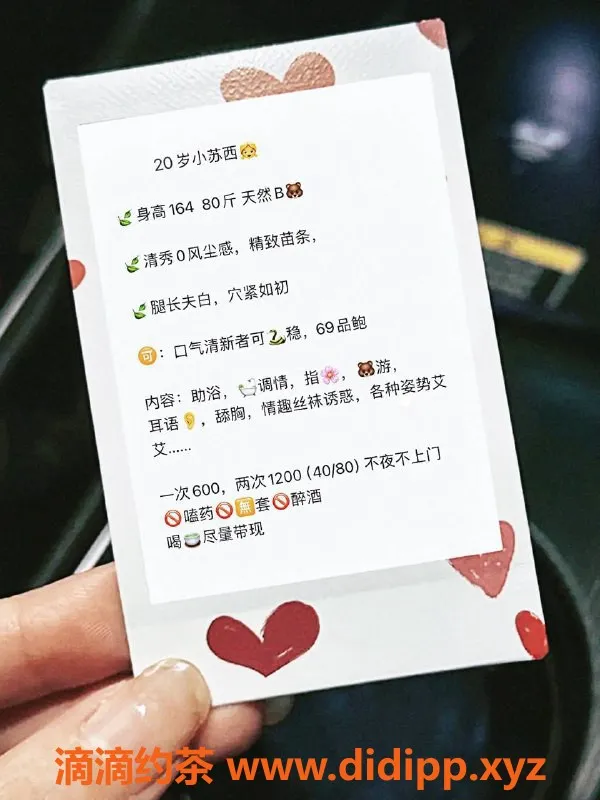 20岁小苏西👧
🌿身高164 80斤 天然B🐻
🌿清秀0风尘感，精致苗条，
🌿腿长夫白，穴紧如初
🉑：口气清新者可🐍稳，69品鲍
内容：助浴，🛁调情，指🌸，🐻游，
耳语👂，舔胸，情趣丝袜诱惑，各种姿势艾
艾……
一次600，两次1200（40/80）不夜不上门
🚫嗑药🚫🈚套🚫醉酒
喝🍵尽量带现
滴滴约茶 www.didipp.xyz